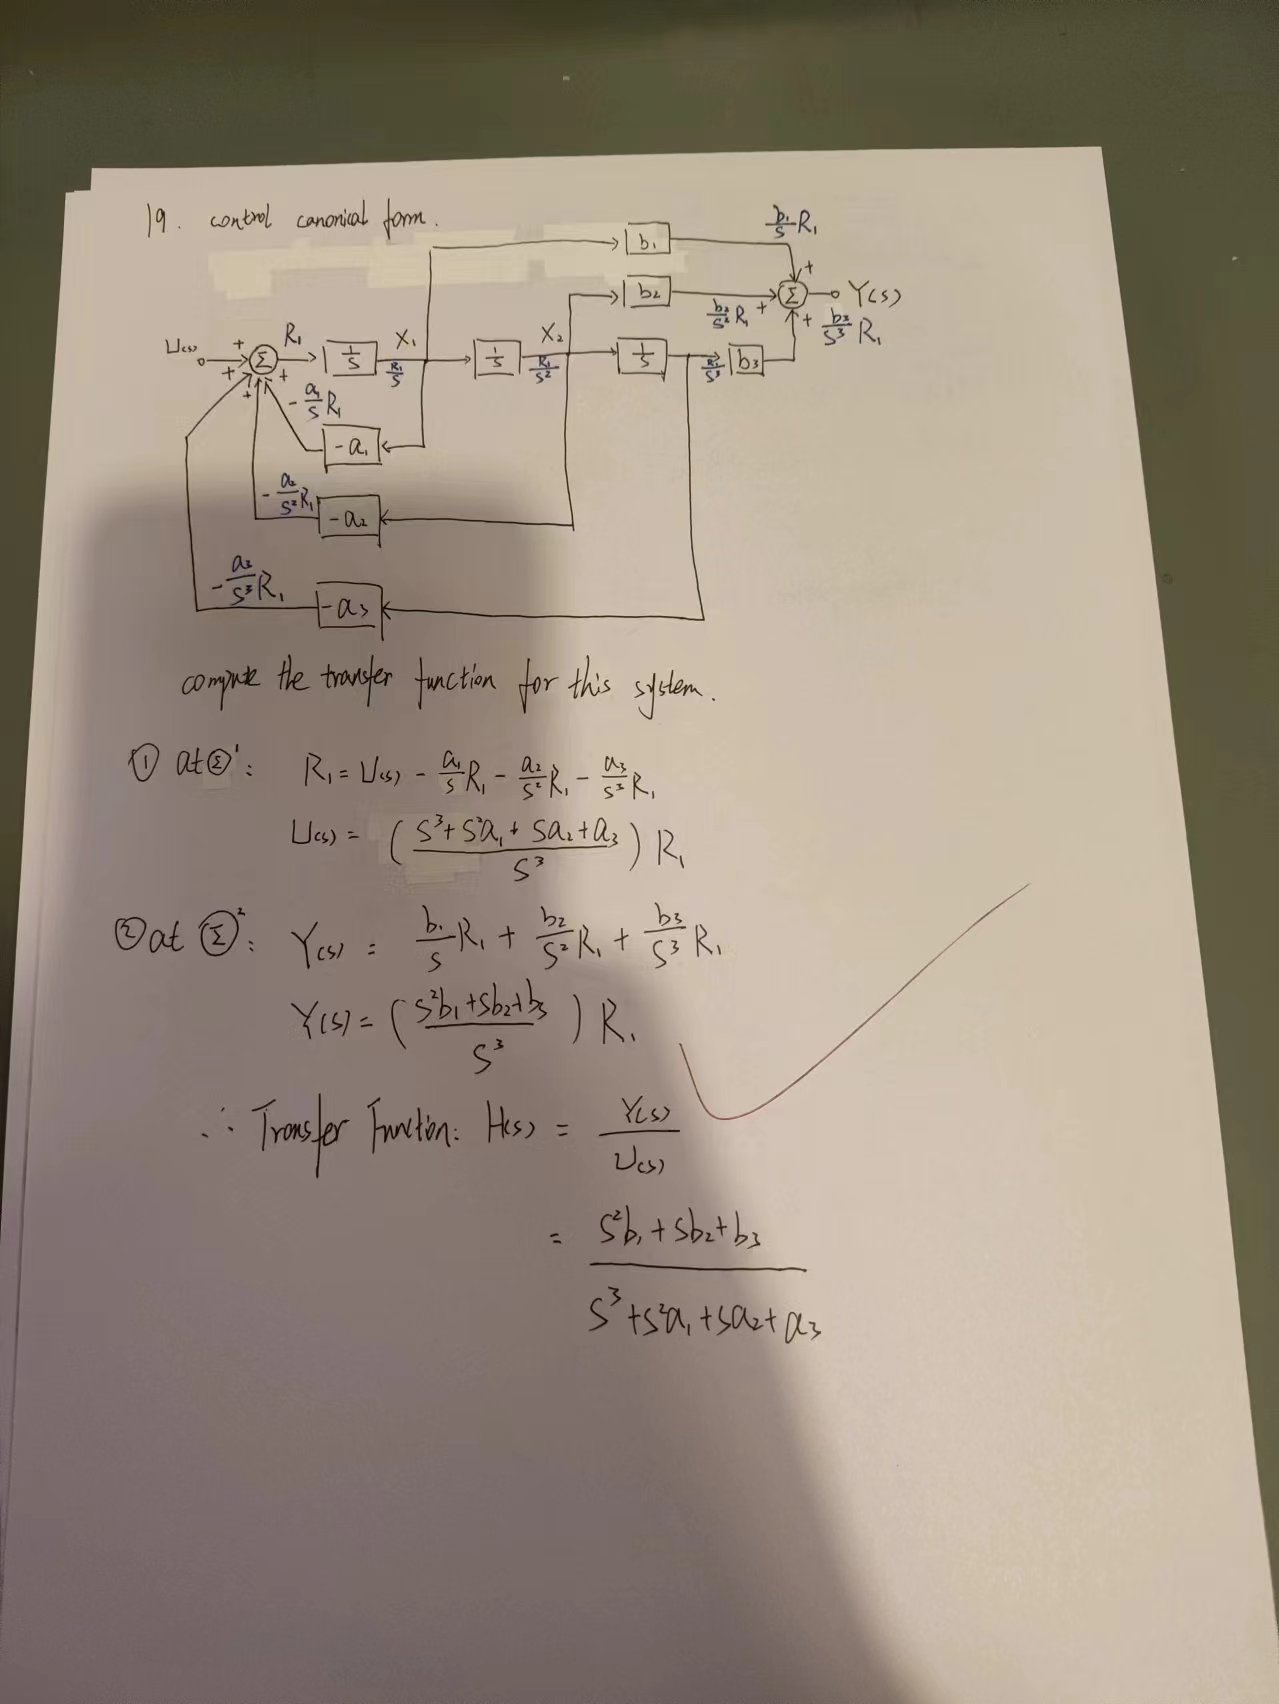 19. control canonical form.
b₁/s R₁
b₁
+
b₂
b₂/s² R₁
+
Σ
Y(s)
+
b₃/s³ R₁
U(s)
+
Σ
R₁
1/s
X₁
R₁/s
1/s
X₂
R₁/s²
1/s
R₁/s³
b₃
+
+
+
-a₁/s R₁
-a₁
-a₂/s² R₁
-a₂
-a₃/s³ R₁
-a₃
compute the transfer function for this system.
① at Σ¹: R₁ = U(s) - a₁/s R₁ - a₂/s² R₁ - a₃/s³ R₁
U(s) = ( (s³+s²a₁+sa₂+a₃) / s³ ) R₁
② at Σ²: Y(s) = b₁/s R₁ + b₂/s² R₁ + b₃/s³ R₁
Y(s) = ( (s²b₁+sb₂+b₃) / s³ ) R₁
∴ Transfer Function: H(s) = Y(s) / U(s)
= (s²b₁+sb₂+b₃) / (s³+s²a₁+sa₂+a₃)